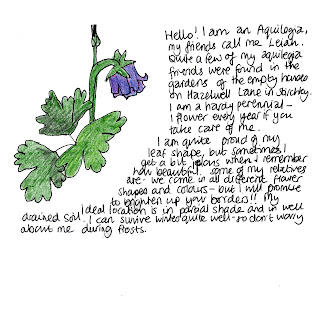 Hello! I am an Aquilegia,
my friends call me Leian.
Quite a few of my aquilegia
friends were found in the
gardens of the empty houses
on Hazelwell Lane in Stirchley.
I am a hardy perennial –
I flower every year if you
take care of me.
I am quite proud of my
leaf shape, but sometimes I
get a bit jealous when I remember
how beautiful some of my relatives
are - we come in all different flower
shapes and colours – but I will promise
to brighten up your borders!! My
ideal location is in partial shade and in well
drained soil. I can survive winter quite well - so don't worry
about me during frosts.